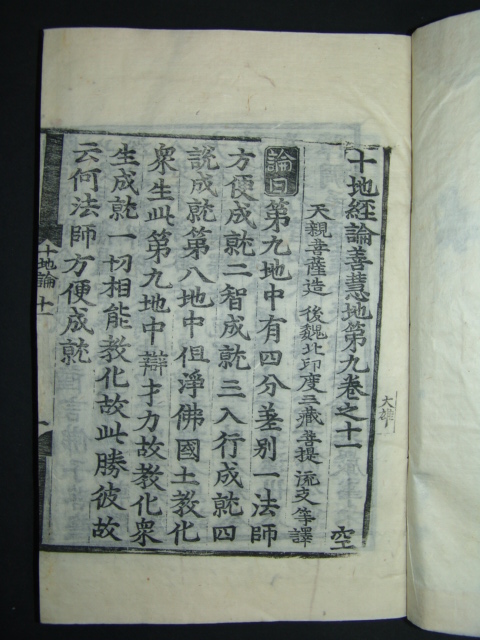 十地經論善慧地第九卷之十一
空
天親菩薩造 後魏北印度三藏菩提流支等譯
論曰第九地中有四分差別一法師
方便成就二智成就三入行成就四
說成就第八地中但淨佛國土教化
衆生此第九地中辯才力故教化衆
生成就一切相能教化故此勝彼故
云何法師方便成就
十地論 十一